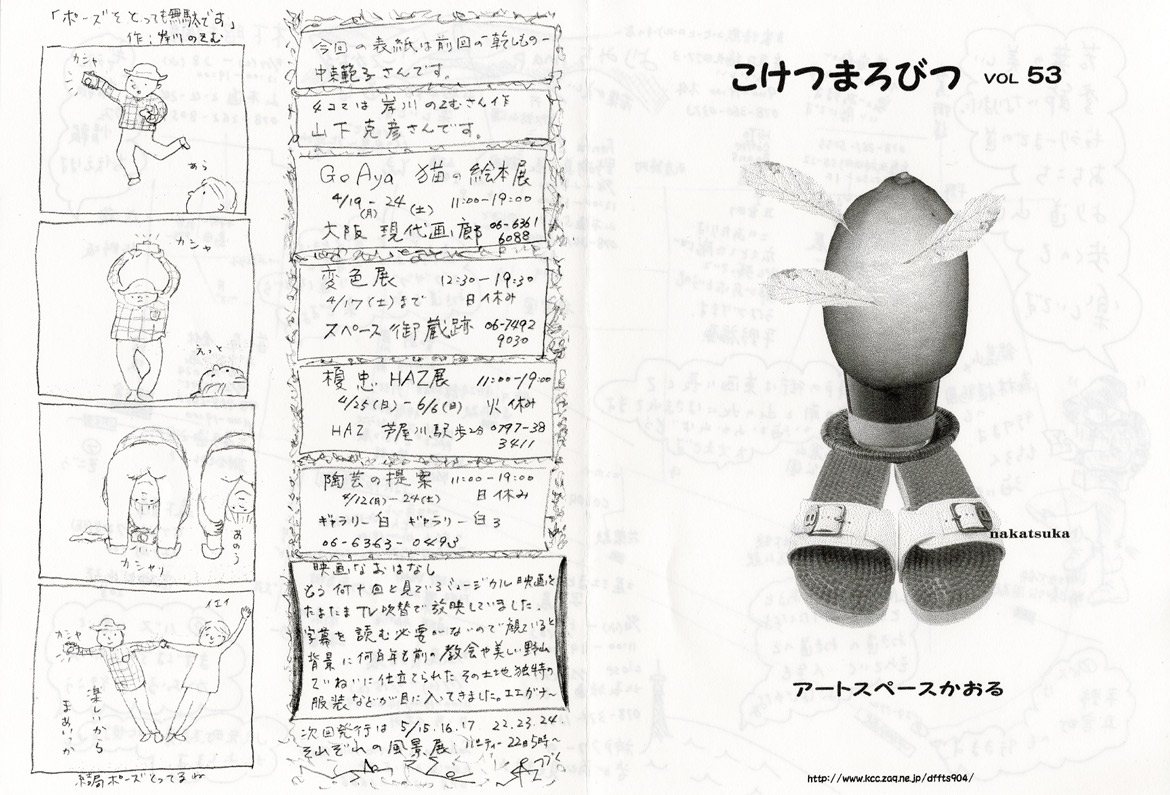 「ポーズをとっても無駄です」
作：岸川のぞむ
カシャ
ン
あら
カシャ
えっと
あのう
カシャリ
イエイ
カシャ
楽しいから
まあいっか
結局ポーズとってるw
今回の表紙は前回の"乾しもの"
中束範子さんです。
4コマは岸川のぞむさん作
山下克彦さんです。
Go Aya 猫の絵本展
4/19(月)-24(土) 11:00-19:00
大阪 現代画廊 06-6361
6088
変色展 12:30-19:30
4/17(土)まで 日休み
スペース御蔵跡 06-7492
9030
榎忠 HAZ展 11:00-19:00
4/25(日) 6/6(日) 火休み
HAZ 芦屋川駅歩2分 0797-38
3411
陶芸の提案 11:00-19:00
4/12(月)-24(土) 日休み
ギャラリー白 ギャラリー白3
06-6363-0493
映画なおはなし
もう何十回と見ているミュージカル映画を
たまたまTV吹替で放映していました。
字幕を読む必要がないので観ていると
背景に何百年も前の教会や美しい野山
ていねいに仕立てられたその土地独特の
服装などが目に入ってきました。エエガナ〜
次回発行は 5/15.16.17 22.23.24
それぞれの風景展 パーティー22日5時〜
こけつまろびつ VOL 53
nakatsuka
アートスペースかおる
http://www.kcc.zaq.ne.jp/dffts904/